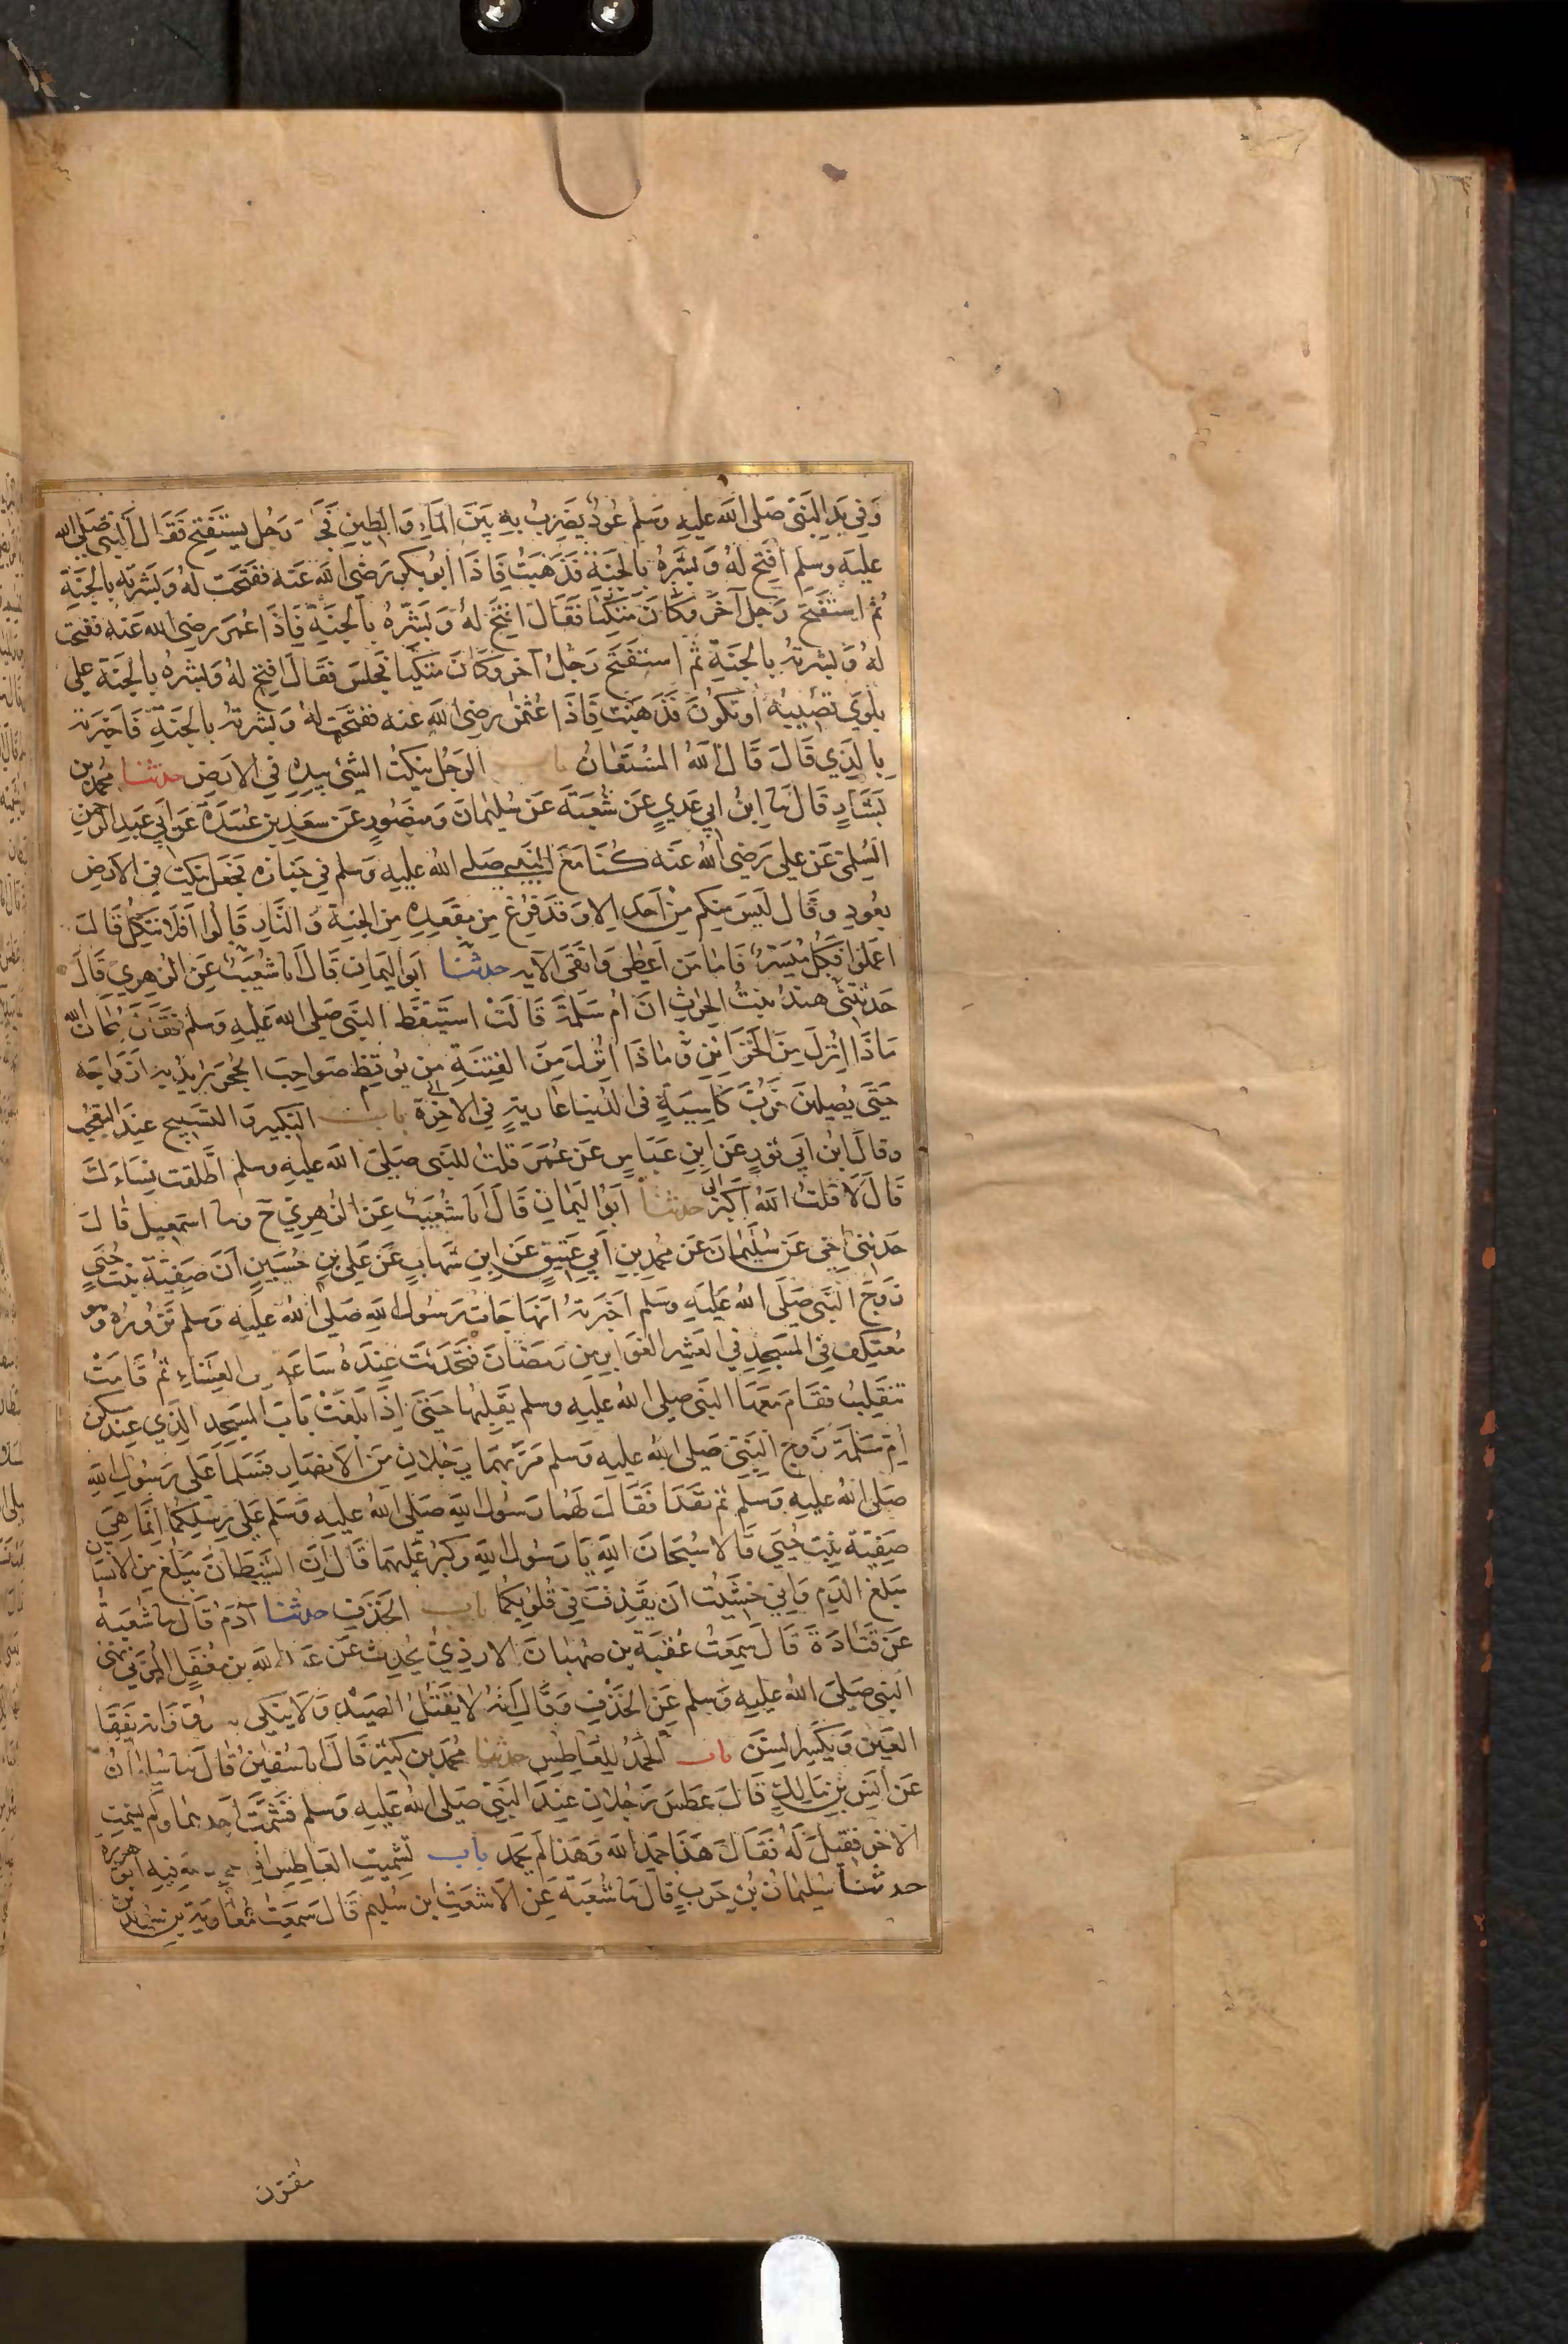 وَفِي يَدِ النَّبِيّ صَلى الله عليه وسلم عُودٌ يَضرِبُ بِهِ بَيْنَ المَاءِ وَالطِينِ فَجَاءَ رَجُل يستَفتِح فَقَالَ النبي صَلى الله
عليه وسلم افتَح لَهُ وَبَشِّرهُ بِالجَنَةِ فَذَهَبتُ فَاذَا ابُو بكرٍ رَضى الله عَنه ففَتَحَت لهُ وَبَشرته بالجنَةِ
ثم استفتحَ رَجل آخر وكان متكئا فَقَالَ افتَح لهُ وَبَشِّرهُ بِالجنَةِ فَاِذَا عُمَر رضى الله عنه ففتحت
لهُ وَبشرته بِالجنَةِ ثم استفتَحَ رَجُل آخر وَكَانَ متكيا فجلس فقَال افتح لهُ وَبشرهُ بِالجَنَة على
بلوَي تصُيبهُ اوتكونَ فَذهَبَت فَاِذَا عُثمن رضى الله عنه ففتَحَت لهُ وَبشرته بِالجَنَةِ فَاخبرته
بِالذِي قَالَ قَالَ الله المُستَعَانُ باب الرَجُل ينكت الشئ بيدِهِ فِي الارض حدثنا محمد بن
بَشَارٍ قَالَ نا ابنُ ابي عَديٍ عَن شُعبَةَ عَن سُليمانَ وَمنصُورٍ عَن سَعدِ بن عُبَيدَةَ عَن ابي عبد الرحمن
السُلَمي عَن على رَضى الله عَنه كُنَا مَعَ النبي صَلى الله عليه وسلم في جنازه فجَعَل ينكت فى الارضِ
بعُود وقَال ليسَ منكم مِنْ احَد الا وقد فرغ مِن مقعَدِهِ مِن الجنةِ وَالنَارِ قَالُوا افَلا نتكل قَالَ
اعملوا فكل مُيسَرٌ فَامَا مَن اعطى وَاتقَى الآيه حدثنا ابَو اليَمانِ قَالَ انا شُعَيبٌ عَن الزهري قَالَ
حَدثتنى هندٌ بنتُ الحرثِ ان ام سَلمَةَ قَالَتْ استيَقظ النبَى صَلى الله عَليه وسلم فَقَالَ سُبحَانَ الله
مَاذَا انزلَ مِنَ الخَزَائِنِ وماذَا انزلَ مِنَ الفِتنَةِ من يُوقِظ صوَاحِبَ الحُجَر يريد به ازوَاجَه
حَتى يُصلينَ رُبَّ كَاسِيَةٍ فى الدُنيا عَاريةٍ فِي الاخِرَة باب التكبير وَالتسبيح عِندَ التعجب
وقَالَ ابن ابي ثورٍ عَن ابن عَبَاسٍ عَن عُمَرَ قلت للنبى صَلى الله عليه وسلم اطَّلقت نِسَاءَك
قَالَ لَا قلتُ الله اكبر حدثنا ابَو اليَمانِ قَالَ انا شُعَيبٌ عَن الزهرِيّ ح ونا اسمعيل قَالَ
حَدثنى اخى عَن سُليَمانَ عَن محمد بن ابي عَتيقٍ عَن ابنِ شهَابٍ عَن عَلىِ بنِ حُسَينٍ ان صَفيَّةَ بنتَ حُيَي
زَوجَ النبَى صَلى الله عَليه وسلم اخبرته انها جَات رَسُول الله صَلى الله عليه وسلم تزُورُه وَهو
مُعتكِفٌ فِي المسجِدِ فِي العَشرِ الغوَابرِ مِن رَمَضانَ فتحَدثت عندَهُ سَاعَة من العِشَاءِ ثُمَّ قَامَتْ
تنقَلِبُ فقَامَ مَعَهَا النبى صلى الله عليه وسلم يَقلِبُها حَتى اِذَا بَلغَتْ بَابَ المسجِد الذِي عِند مسكن
ام سَلمَةَ زَوج النبَى صَلى الله عليه وسلم مَرَّ بهمَا رَجُلانِ مَن الانصَارِ فسَلما عَلى رَسُول الله
صَلى الله عليه وَسَلم ثم نفَذا فقَالَ لهمَا رَسُول الله صَلى الله عليه وَسَلم عَلى رِسلِكُمَا اِنمَا هِيَ
صَفِيَة بِنت حُيَي قَالا سُبحَانَ اللهِ يَا رَسُول الله وكَبُرَ عَليهمَا قَالَ اِنَ الشَيطَانَ يبلغ من الانسان
مَبلغ الدَم وَاِني خشيتُ ان يَقذِفَ فِي قُلوبكُما باب الخَذف حدثنا آدَمُ قَالَ نا شُعبَةُ
عَن قَتَادَةَ قَالَ سَمِعتُ عُقبَةَ بن صُهبَانَ الازديّ يُحدِث عَن عَبد الله بن مُغفَّلٍ المزنى نهى
النبي صَلى الله عليه وسلم عَنِ الخَذفِ وَقَالَ اِنه لا يقتُل الصَيدَ وَلا ينكى العدو وَانه يَفقَا
العَينَ وَيَكسِرُ السنَ باب الحَمدُ للعَاطِسِ حدثنا محمد بن كثير قَالَ انا سُفينُ قَالَ نا سُليمانُ
عَن انَس بن مَالِكٍ قَالَ عطسَ رَجُلانِ عِندَ النبَّى صَلى الله عَليه وسلم فشَمَّتَ احَدهما ولم يشمت
الاخر فقيلَ لَهُ فقَالَ هَذَا حمَد الله وَهَذا لم يحمد باب تشميت العَاطِس اذا حمد الله فيه ابو هريره
حدثنا سُليَمانُ بن حَربٍ قالَ نا شُعبَةَ عَنِ الاشعَثِ بن سُليم قَالَ سَمِعتُ مُعَاوية بن سُويد بن
مقرّن